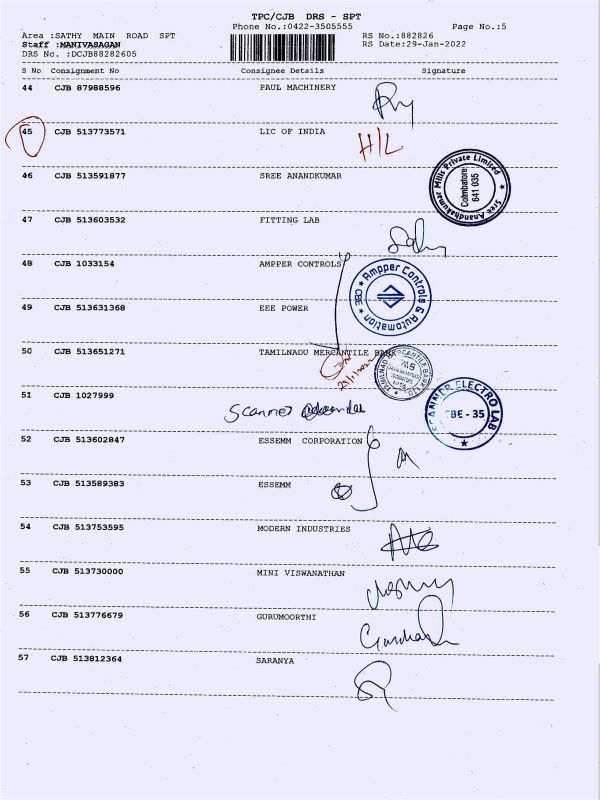 TPC/CJB DRS - SPT
Phone No.:0422-3505555 Page No.:5
Area :SATHY MAIN ROAD SPT RS No.:882826
Staff :MANIVASAGAN RS Date:29-Jan-2022
DRS No. :DCJB88282605
S No Consignment No Consignee Details Signature
44 CJB 87988596 PAUL MACHINERY
45 CJB 513773571 LIC OF INDIA H/L
46 CJB 513591877 SREE ANANDKUMAR
Sree Anandhakumar Mills Private Limited
Coimbatore
641 035
47 CJB 513603532 FITTING LAB
48 CJB 1033154 AMPPER CONTROLS
Ampper Controls & Automation
CBE
49 CJB 513631368 EEE POWER
50 CJB 513651271 TAMILNADU MERCANTILE BANK
51 CJB 1027999
Scanner
SCANNER ELECTRO LAB
CBE - 35
52 CJB 513602847 ESSEMM CORPORATION
53 CJB 513589383 ESSEMM
54 CJB 513753595 MODERN INDUSTRIES
55 CJB 513730000 MINI VISWANATHAN
56 CJB 513776679 GURUMOORTHI
57 CJB 513812364 SARANYA